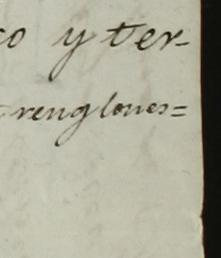 co y ter-
renglones=